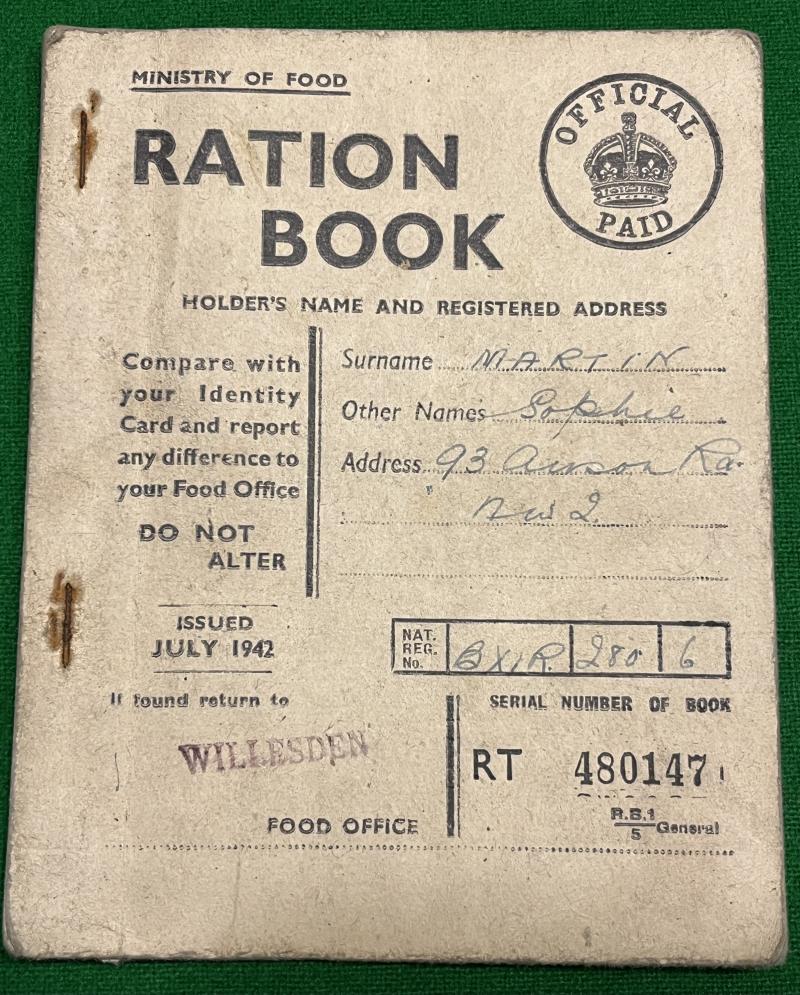 MINISTRY OF FOOD
OFFICIAL
PAID
RATION
BOOK
HOLDER'S NAME AND REGISTERED ADDRESS
Compare with
your Identity
Card and report
any difference to
your Food Office
DO NOT
ALTER
Surname MARTIN
Other Names Sophie
Address 93 Anson Rd.
NW2
ISSUED
JULY 1942
NAT.
REG.
No.
BXIR 280 6
If found return to
WILLESDEN
FOOD OFFICE
SERIAL NUMBER OF BOOK
RT 480147
R.B.1
5
General